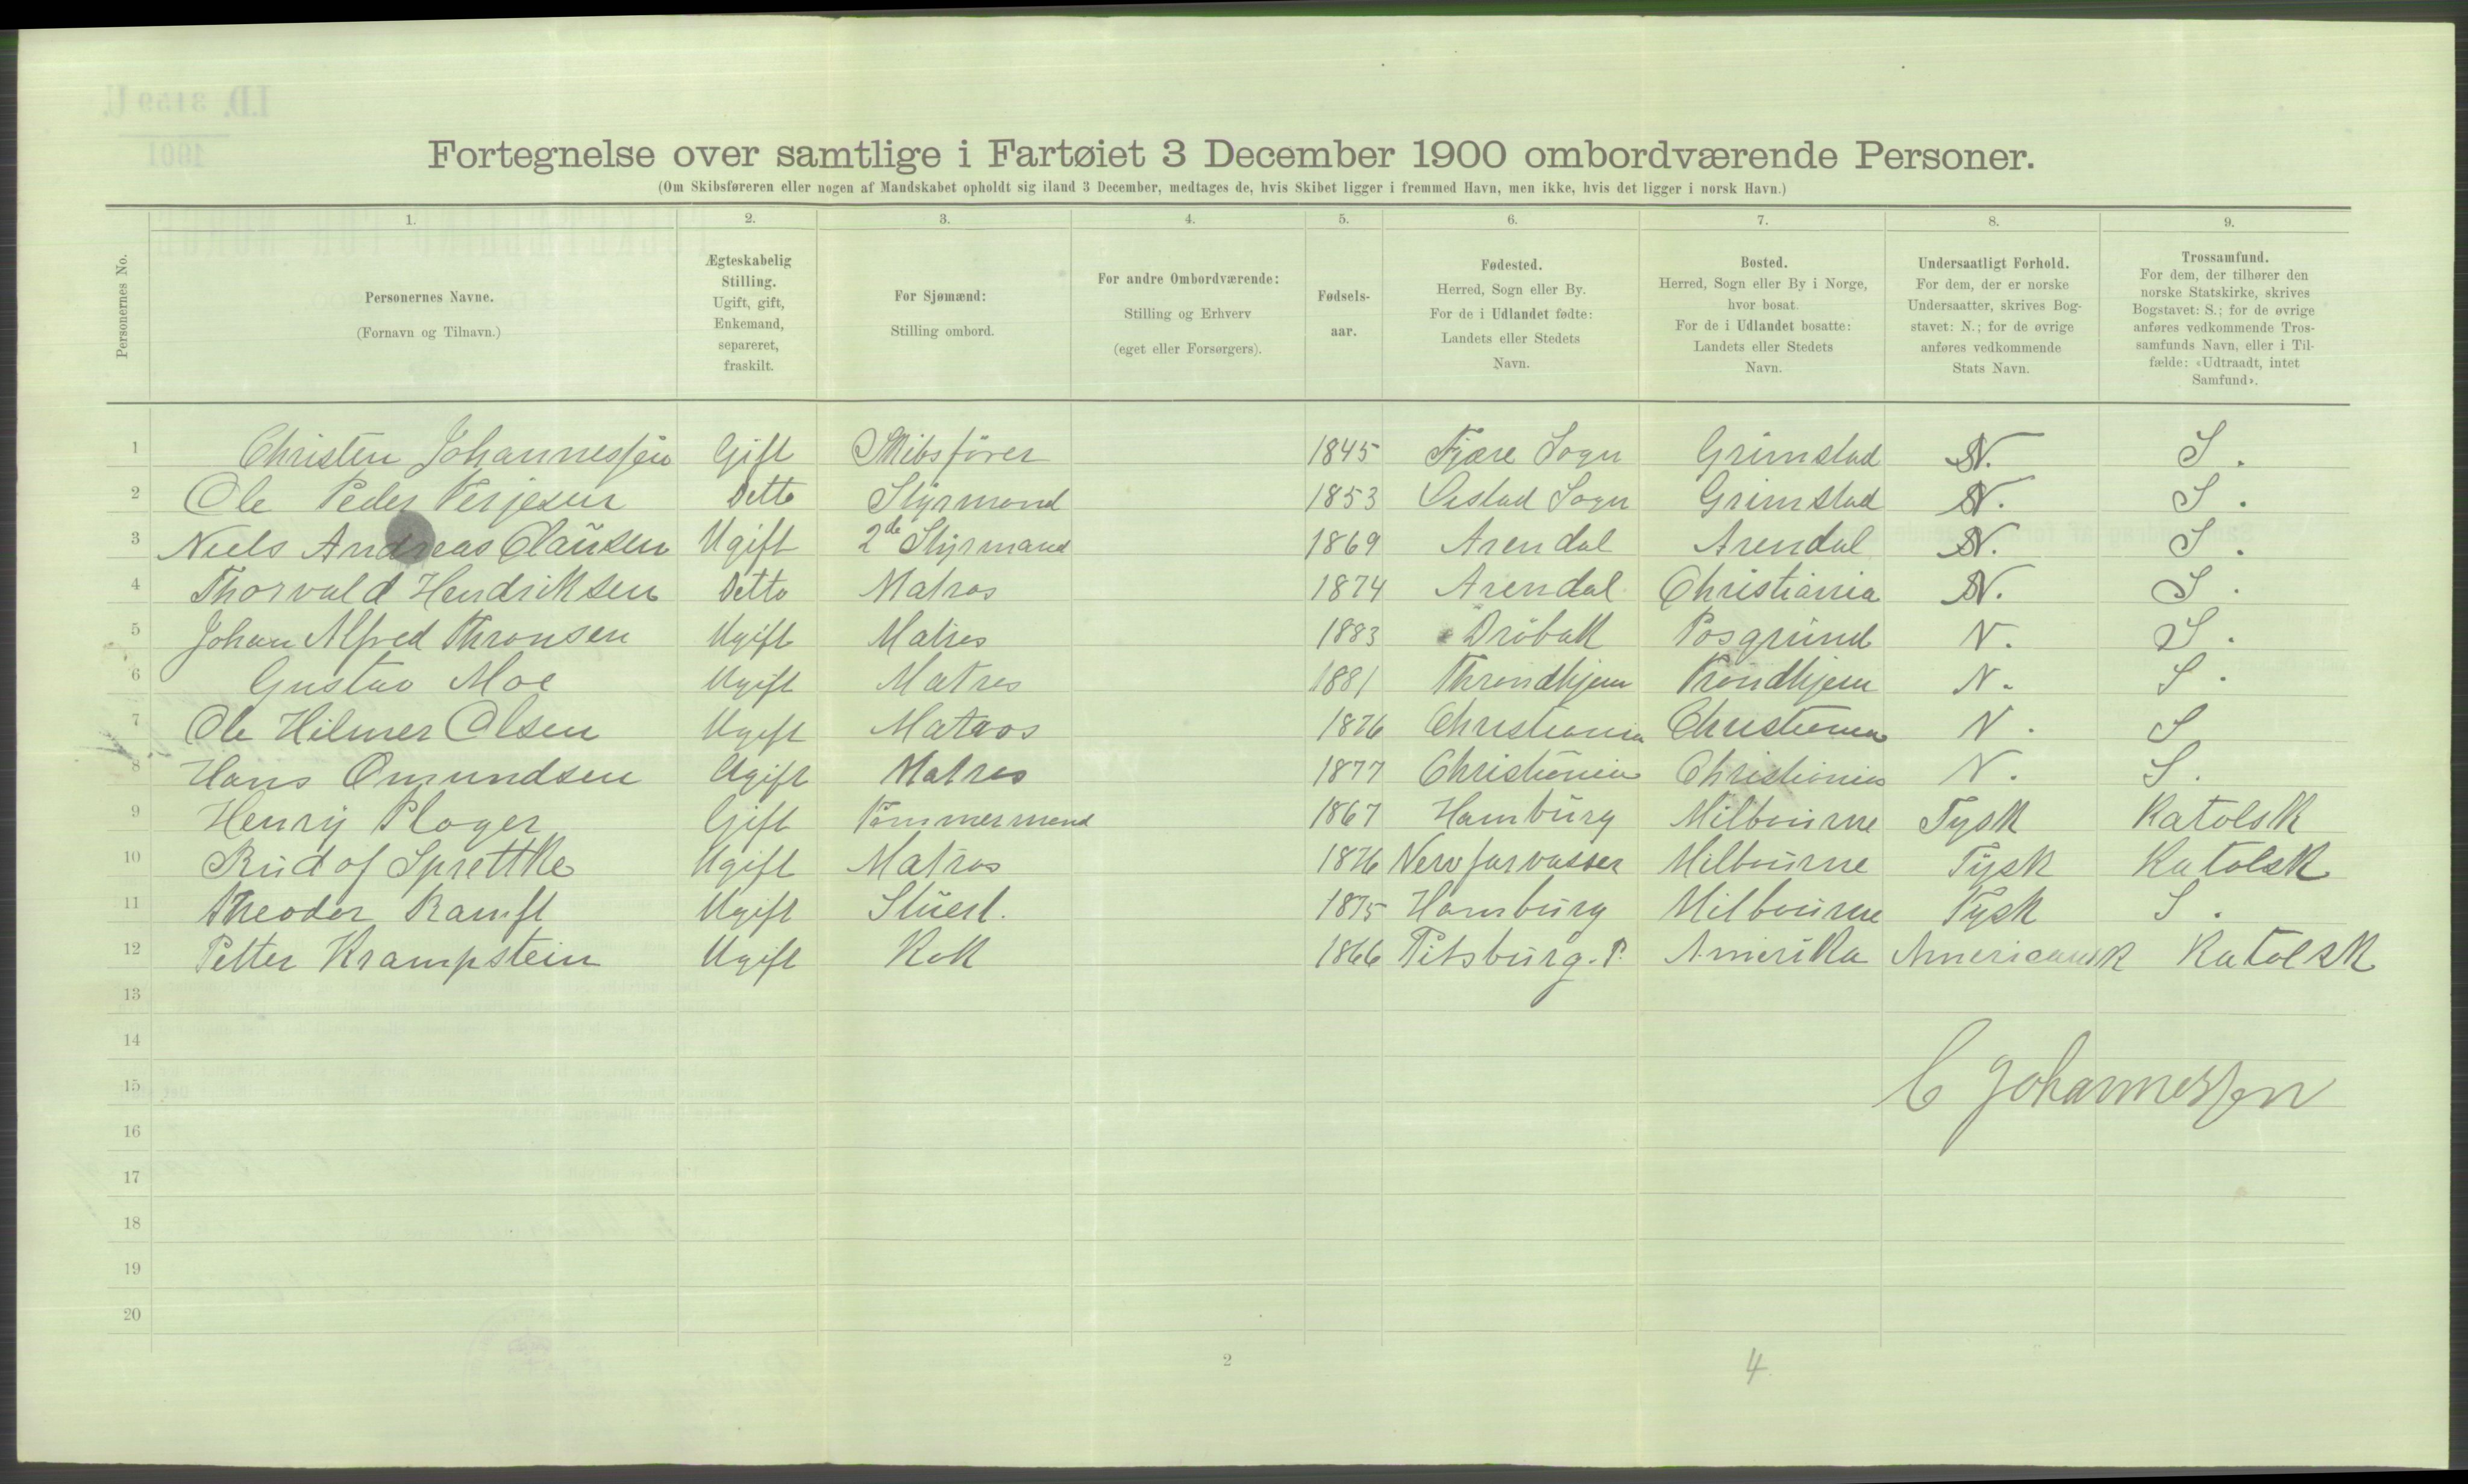 Fortegnelse over samtlige i Fartøiet 3 December 1900 ombordværende Personer.
(Om Skibsføreren eller nogen af Mandskabet opholdt sig iland 3 December, medtages de, hvis Skibet ligger i fremmed Havn, men ikke, hvis det ligger i norsk Havn.)
Personernes No.
1. 2. 3. 4. 5. 6. 7. 8. 9.
Personernes Navne.
(Fornavn og Tilnavn.)
Ægteskabelig
Stilling.
Ugift, gift,
Enkemand,
separeret,
fraskilt.
For Sjømænd:
Stilling ombord.
For andre Ombordværende:
Stilling og Erhverv
(eget eller Forsørgers).
Fødsels-
aar.
Fødested.
Herred, Sogn eller By.
For de i Udlandet fødte:
Landets eller Stedets
Navn.
Bosted.
Herred, Sogn eller By i Norge,
hvor bosat.
For de i Udlandet bosatte:
Landets eller Stedets
Navn.
Undersaatligt Forhold.
For dem, der er norske
Undersaatter, skrives Bog-
stavet: N.; for de øvrige
anføres vedkommende
Stats Navn.
Trossamfund.
For dem, der tilhører den
norske Statskirke, skrives
Bogstavet: S.; for de øvrige
anføres vedkommende Tros-
samfunds Navn, eller i Til-
fælde: «Udtraadt, intet
Samfund».
1 Christen Johannessen Gift Skibsfører 1845 Fjære Sogn Grimstad N. S.
2 Ole Peder Terjesen Detto Styrmand 1853 Øestad Sogn Grimstad N. S.
3 Niels Andreas Clausen Ugift 2de Styrmand 1869 Arendal Arendal N. S.
4 Thorvald Hendriksen Detto Matros 1874 Arendal Christiania N. S.
5 Johan Alfred Thronsen Ugift Matros 1883 Dröbak Posgrund N. S.
6 Gustav Moe Ugift Matros 1881 Throndhjem Trondhjem N. S.
7 Ole Hilmer Olsen Ugift Matros 1876 Christiania Christiania N. S
8 Hans Omundsen Ugift Matros 1877 Christiania Christiania N. S.
9 Henry Ploger Gift Tømmermand 1867 Hamburg Milbourne Tysk Katolsk
10 Rudof Sprettke Ugift Matros 1876 Newfarvasser Milbourne Tysk Katolsk
11 Theodor Ramft Ugift Stuert. 1875 Hamburg Milbourne Tysk S.
12 Petter Krampstein Ugift Kok 1866 Pitsburg. P. Amerika Americansk Katolsk
13
14
C Johannessen
15
16
17
18
19
20
2
4